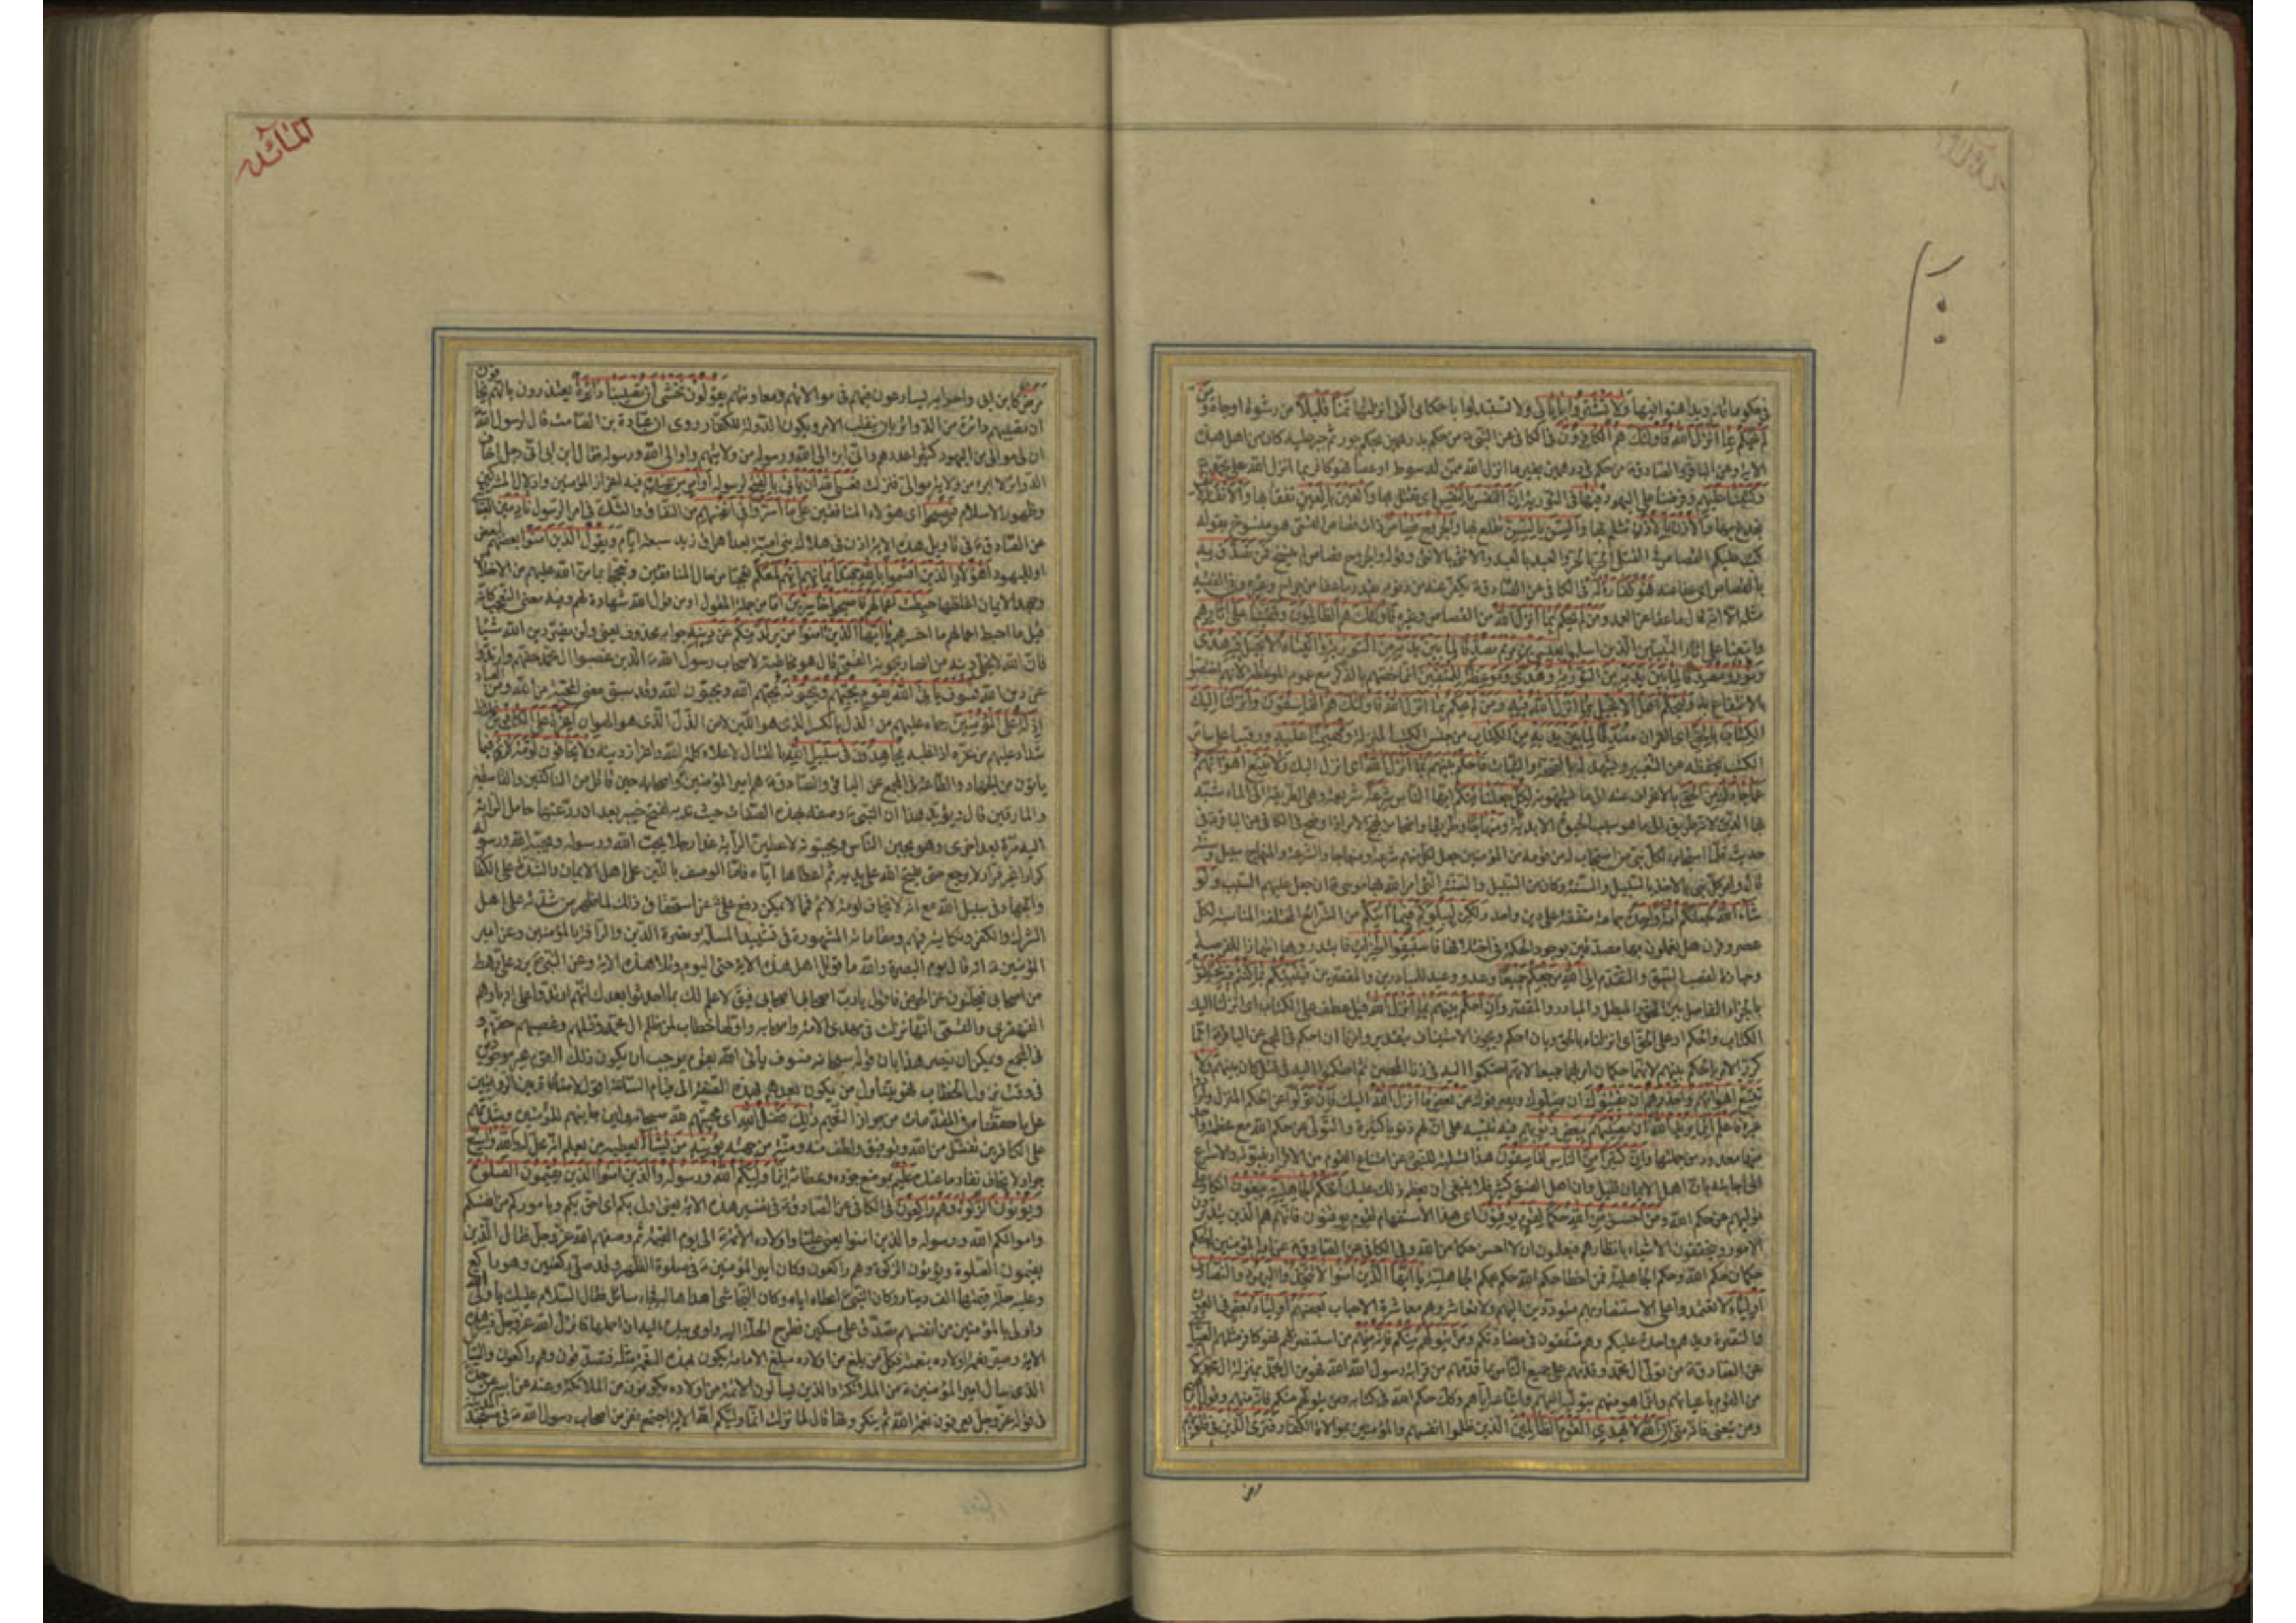 المائدة
في حكوماتهم ويداهنوا فيها ولا تشتروا باياتي ولا تستبدلوا باحكامي التي انزلتها ثمنا قليلا من رشوة او جاه ومن
لم يحكم بما انزل الله فاولئك هم الكافرون في الكافي عن النبي من حكم بدرهمين بحكم جور ثم جبر عليه كان من اهل هذه
الاية وعن الباقر والصادق من حكم في درهمين بغير ما انزل الله ممن له سوط او عصا فهو كافر بما انزل الله على محمد
وكتبنا عليهم وفرضنا على اليهود فيها في التورية ان النفس بالنفس اي تقتل بها والعين بالعين تفقأ بها والانف بالانف
يجدع بها والاذن بالاذن والسن بالسن تقلع بها والجروح قصاص ذات قصاص القمي هو منسوخ بقوله
كتب عليكم القصاص في القتلى الحر بالحر والعبد بالعبد والانثى بالانثى وقوله والجروح قصاص لم ينسخ فمن تصدق به
بالقصاص اي عفا عنه فهو كفارة له في الكافي عن الصادق يكفر عنه من ذنوبه بقدر ما عفا من جراح وغيره وفي الفقيه
مثله الا انه قال ما عفا عن العمد ومن لم يحكم بما انزل الله من القصاص وغيره فاولئك هم الظالمون وقفينا على اثارهم
واتبعنا على اثار النبيين الذين اسلموا بعيسى بن مريم مصدقا لما بين يديه من التورية واتيناه الانجيل فيه هدى
ونور ومصدقا لما بين يديه من التورية وهدى وموعظة للمتقين انما خصهم بالذكر مع عموم الموعظة لانهم اختصوا
بالانتفاع به وليحكم اهل الانجيل بما انزل الله فيه ومن لم يحكم بما انزل الله فاولئك هم الفاسقون وانزلنا اليك
الكتاب بالحق اي القران مصدقا لما بين يديه من الكتاب من جنس الكتب المنزلة ومهيمنا عليه ورقيبا على سائر
الكتب يحفظه عن التغيير ويشهد له بالصحة والثبات فاحكم بينهم بما انزل الله اي انزل اليك ولا تتبع اهواءهم
عما جاءك من الحق بالانحراف عنه الى ما يشتهونه لكل جعلنا منكم ايها الناس شرعة شريعة وهي الطريقة الى الماء شبه
بها الدين لانه طريق الى ما هو سبب الحيوة الابدية ومنهاجا وطريقا واضحا من نهج الامر اذا وضح في الكافي عن الباقر في
حديث فلما استجاب لكل نبي من استجاب له من قومه من المؤمنين جعل لكل منهم شرعة ومنهاجا والشرعة والمنهاج سبيل وسنة
قال وامر كل نبي بالاخذ بالسبيل والسنة وكان من السبيل والسنة التي امر الله بها موسى ان جعل عليهم السبت ولو
شاء الله لجعلكم امة واحدة جماعة متفقة على دين واحد ولكن ليبلوكم فيما اتيكم من الشرائع المختلفة المناسبة لكل
عصر وقرن هل تعملون بها مصدقين بوجود الحكمة في اختلافها فاستبقوا الخيرات فابتدروها انتهازا للفرصة
وحيازة لقصب السبق والتقدم الى الله مرجعكم جميعا وعد ووعيد للمبادرين والمقصرين فينبئكم بما كنتم فيه تختلفون
بالجزاء الفاصل بين المحق والمبطل والمبادر والمقصر وان احكم بينهم بما انزل الله قيل عطف على الكتاب اي انزلنا اليك
الكتاب والحكم او على الحق اي انزلناه بالحق وبان احكم ويجوز الاستيناف بتقدير وامرنا ان احكم في المجمع عن الباقر انما
كرر الامر بالحكم بينهم لانهما حكمان امر بهما جميعا لانهم احتكموا اليه في زنا المحصن ثم احتكموا اليه في قتل كان بينهم ولا
تتبع اهواءهم واحذرهم ان يفتنوك ان يضلوك ويصرفوك عن بعض ما انزل الله اليك فان تولوا عن الحكم المنزل وارادوا
غيره فاعلم انما يريد الله ان يصيبهم ببعض ذنوبهم فيه تنبيه على ان لهم ذنوبا كثيرة والتولي عن حكم الله مع عظمه واحد
منها معدود من جملتها وان كثيرا من الناس لفاسقون هذا تسلية للنبي عن امتناع القوم من الاقرار بنبوته والاسراع
الى اجابته بان اهل الايمان قليل وان اهل الفسق كثير فلا ينبغي ان يعظم ذلك عليك افحكم الجاهلية يبغون انكار على
توليهم عن حكم الله ومن احسن من الله حكما لقوم يوقنون اي هذا الاستفهام لقوم يوقنون فانهم هم الذين يتدبرون
الامور ويتحققون الاشياء بانظارهم فيعلمون ان لا احسن حكما من الله وفي الكافي عن الصادق عن امير المؤمنين الحكم
حكمان حكم الله وحكم الجاهلية فمن اخطأ حكم الله حكم بحكم الجاهلية يا ايها الذين امنوا لا تتخذوا اليهود والنصارى
اولياء لا تعتمدوا على الاستنصار بهم متوددين اليهم ولا تعاشروهم معاشرة الاحباب بعضهم اولياء بعض في العون
والنصرة ويدهم واحدة عليكم وهم متفقون في مضادتكم ومن يتولهم منكم فانه منهم من استنصر بهم فهو كافر مثلهم العياشي
عن الصادق من تولى ال محمد وقدمهم على جميع الناس بما قدمهم من قرابة رسول الله فهو من ال محمد بمنزلة ال محمد لا
من القوم باعيانهم وانما هو منهم بتوليه اليهم واتباعه اياهم وكذلك حكم الله في كتابه ومن يتولهم منكم فانه منهم وقول ابراهيم
ومن تبعني فانه مني ان الله لا يهدي القوم الظالمين الذين ظلموا انفسهم والمؤمنين بموالاة الكفار فترى الذين في قلوبهم
المائدة
مرض كابن ابي واضرابه يسارعون فيهم في موالاتهم ومعاونتهم يقولون نخشى ان تصيبنا دائرة يعتذرون بانهم يخافون
ان تصيبهم دائرة من الدوائر بان ينقلب الامر ويكون الدولة للكفار روى ان عبادة بن الصامت قال لرسول الله
ان لي موالى من اليهود كثيرا عددهم واني ابرء الى الله ورسوله من ولايتهم واوالي الله ورسوله فقال ابن ابي اني رجل اخاف
الدوائر لا ابرء من ولاية موالي فنزلت فعسى الله ان يأتي بالفتح لرسوله او امر من عنده فيه اعزاز المؤمنين واذلال المشركين
وظهور الاسلام فيصبحوا اي هؤلاء المنافقين على ما اسروا في انفسهم من النفاق والشك في امر الرسول نادمين العياشي
عن الصادق في تأويل هذه الاية اذن في هلاك بني امية بعد احراق زيد سبعة ايام ويقول الذين امنوا بعضهم لبعض
او لليهود اهؤلاء الذين اقسموا بالله جهد ايمانهم انهم لمعكم تعجبا من حال المنافقين وتبجحا بما من الله عليهم من الاخلاص
وجهد الايمان اغلظها حبطت اعمالهم فاصبحوا خاسرين اما من جملة المقول او من قول الله شهادة لهم وفيه معنى التعجب كانه
قيل ما احبط اعمالهم ما اخسرهم يا ايها الذين امنوا من يرتد منكم عن دينه جوابه محذوف يعني فلن يضر دين الله شيئا
فان الله لا يخلي دينه من انصار يحمونه القمي قال هو مخاطبة لاصحاب رسول الله الذين غصبوا ال محمد حقهم وارتدوا
عن دين الله فسوف يأتي الله بقوم يحبهم ويحبونه يحبهم الله ويحبون الله وقد سبق معنى المحبة من الله ومن العباد
اذلة على المؤمنين رحماء عليهم من الذل بالكسر الذي هو اللين لا من الذل الذي هو الهوان اعزة على الكافرين غلاظ
شداد عليهم من عزه اذا غلبه يجاهدون في سبيل الله بالقتال لاعلاء كلمة الله واعزاز دينه ولا يخافون لومة لائم فيما
يأتون من الجهاد والطاعة في المجمع عن الباقر والصادق هم امير المؤمنين واصحابه حين قاتل من الناكثين والقاسطين
والمارقين قال ويؤيد هذا ان النبي وصفه بهذه الصفات حيث ندبه لفتح خيبر بعد ان رد عنها حامل الراية
اليه مرة بعد اخرى وهو يجبن الناس ويجبنونه لاعطين الراية غدا رجلا يحب الله ورسوله ويحبه الله ورسوله
كرارا غير فرار لا يرجع حتى يفتح الله على يديه ثم اعطاها اياه فاما الوصف باللين على اهل الايمان والشدة على الكفار
والجهاد في سبيل الله مع انه لا يخاف لومة لائم فما لا يمكن دفع علي عن استحقاق ذلك لما ظهر من شدته على اهل
الشرك والكفر ونكايته فيهم ومقاماته المشهورة في تشييد الملة ونصرة الدين والرأفة بالمؤمنين وعن امير
المؤمنين انه قال يوم البصرة والله ما قوتل اهل هذه الاية حتى اليوم وتلا هذه الاية وعن النبي يرد علي رهط
من اصحابي فيجلون عن الحوض فاقول يا رب اصحابي اصحابي فيق لا علم لك بما احدثوا بعدك انهم ارتدوا على ادبارهم
القهقرى والقمي انها نزلت في مهدي الامة واصحابه واولها خطاب لمن ظلم ال محمد وقتلهم وغصبهم حقهم و
في المجمع ويمكن ان ينصر هذا بان قوله سبحانه فسوف يأتي الله بقوم يوجب ان يكون ذلك القوم غير موجودين
في وقت نزول الخطاب فهو يتناول من يكون بعدهم بهذه الصفة الى قيام الساعة اقول لا منافاة بين الروايتين
على ما حققناه في المقدمات من جواز التعميم ذلك فضل الله اي محبتهم لله سبحانه ولين جانبهم للمؤمنين وشدتهم
على الكافرين تفضل من الله وتوفيق ولطف منه ومنة من جهته يؤتيه من يشاء يعطيه من يعلم انه محل له والله واسع
جواد لا يخاف نفاد ما عنده عليم بموضع جوده وعطائه انما وليكم الله ورسوله والذين امنوا الذين يقيمون الصلوة
ويؤتون الزكوة وهم راكعون في الكافي عن الصادق في تفسير هذه الاية يعني اولى بكم اي احق بكم وباموركم من انفسكم
واموالكم الله ورسوله والذين امنوا يعني عليا واولاده الائمة الى يوم القيمة ثم وصفهم الله عز وجل فقال الذين
يقيمون الصلوة ويؤتون الزكوة وهم راكعون وكان امير المؤمنين في صلوة الظهر وقد صلى ركعتين وهو راكع
وعليه حلة قيمتها الف دينار وكان النبي اعطاه اياه وكان النجاشي اهداها اليه فجاء سائل فقال السلام عليك يا ولي الله
واولى بالمؤمنين من انفسهم تصدق على مسكين فطرح الحلة اليه واومى بيده اليه ان احملها فانزل الله عز وجل فيه هذه
الاية وصير نعمة اولاده بنعمته فكل من بلغ من اولاده مبلغ الامامة يكون بهذه النعمة مثله فيتصدقون وهم راكعون والسائل
الذي سأل امير المؤمنين من الملائكة والذين يسألون الائمة من اولاده يكونون من الملائكة وعنه عن ابيه عن جده
في قوله عز وجل يعرفون نعمة الله ثم ينكرونها قال لما نزلت انما وليكم الله الاية اجتمع نفر من اصحاب رسول الله في مسجد